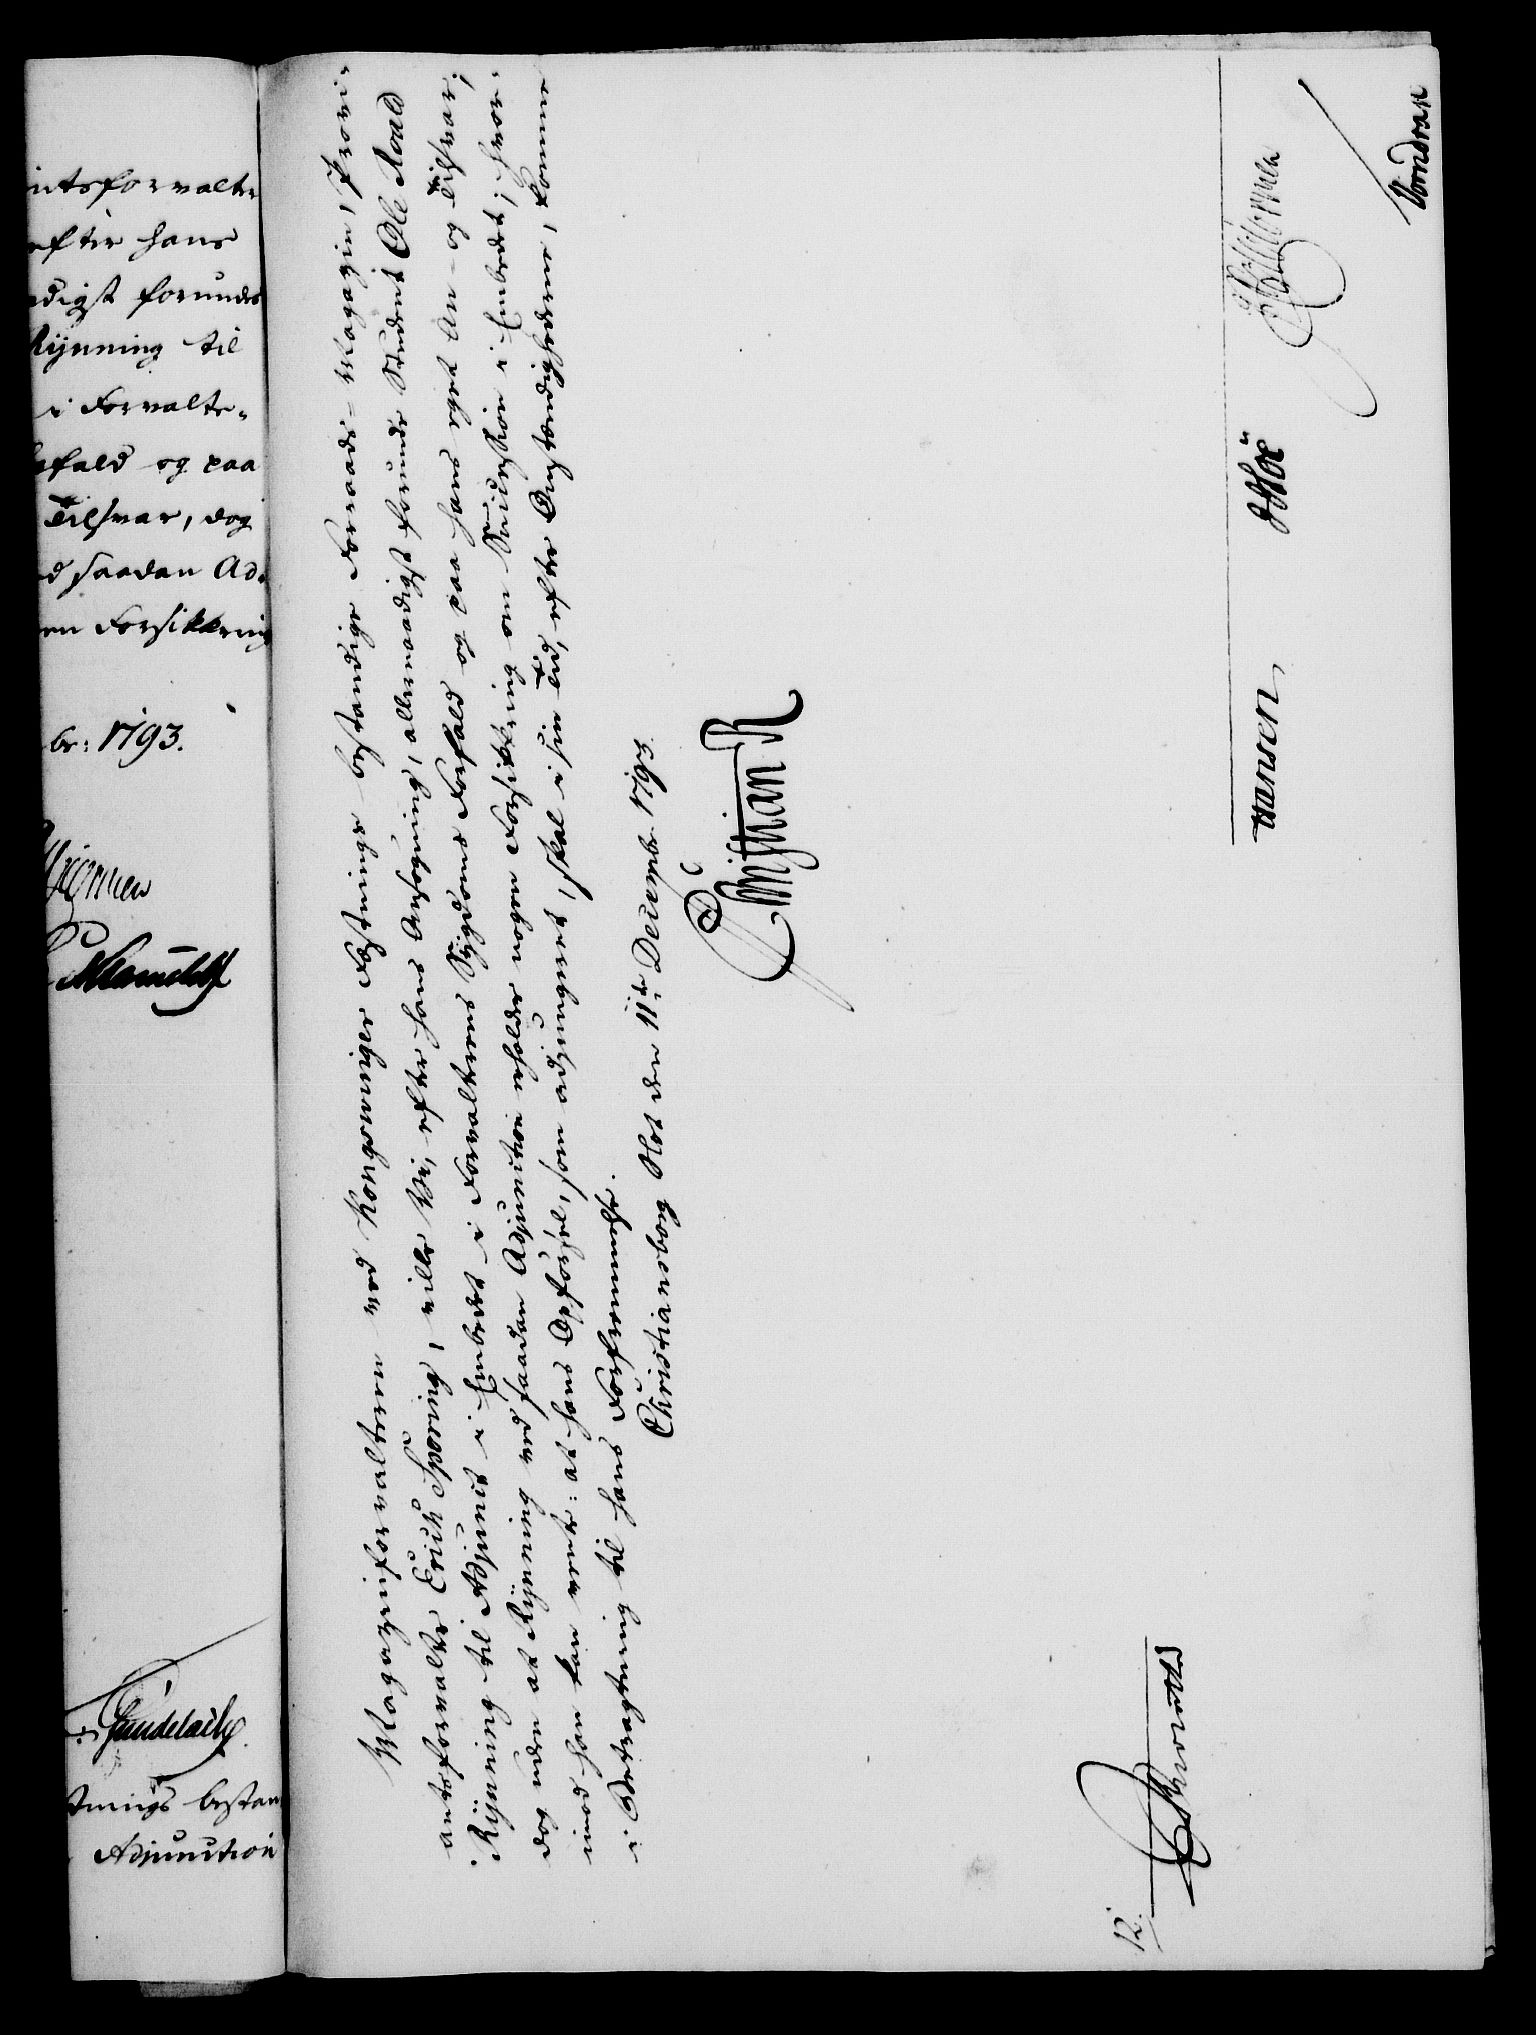 intsforvalter
efter hans
adigst forundes
Rijnning til
i Forvalte-
fald og paa
Tilsvar, dog
d saadan Ad-
en Forsikkring
br: 1793.
Gundelach
tnings bestan
Adjunction
Magazinforvalteren ved Kongsvinger Fæstnings bestandige Forraads-Magazin, Provi-
antsforvalter Erich Spøring, ville Vi, efter hans Ansøgning, allernaadigst forunde Student Ole Roald
Rijnning til Adjunct i Embedet i Forvalterens Sÿgdoms Forfald og paa hans eget An- og Tilsvar,
dog uden at Rijnning ved saadan Adjunction erholder nogen Forsikkring om Succession i Embedet; hvor-
imod han kan vente: at hans Opførsel, som adjungeret, skal i sin Tid, efter Omstændighederne, komme
i Betragtning til hans Forfremmelse.
Christiansborg Slot den 11te Decembr. 1793.
Christian R
12.
Hansen,
Høÿer
Vondran